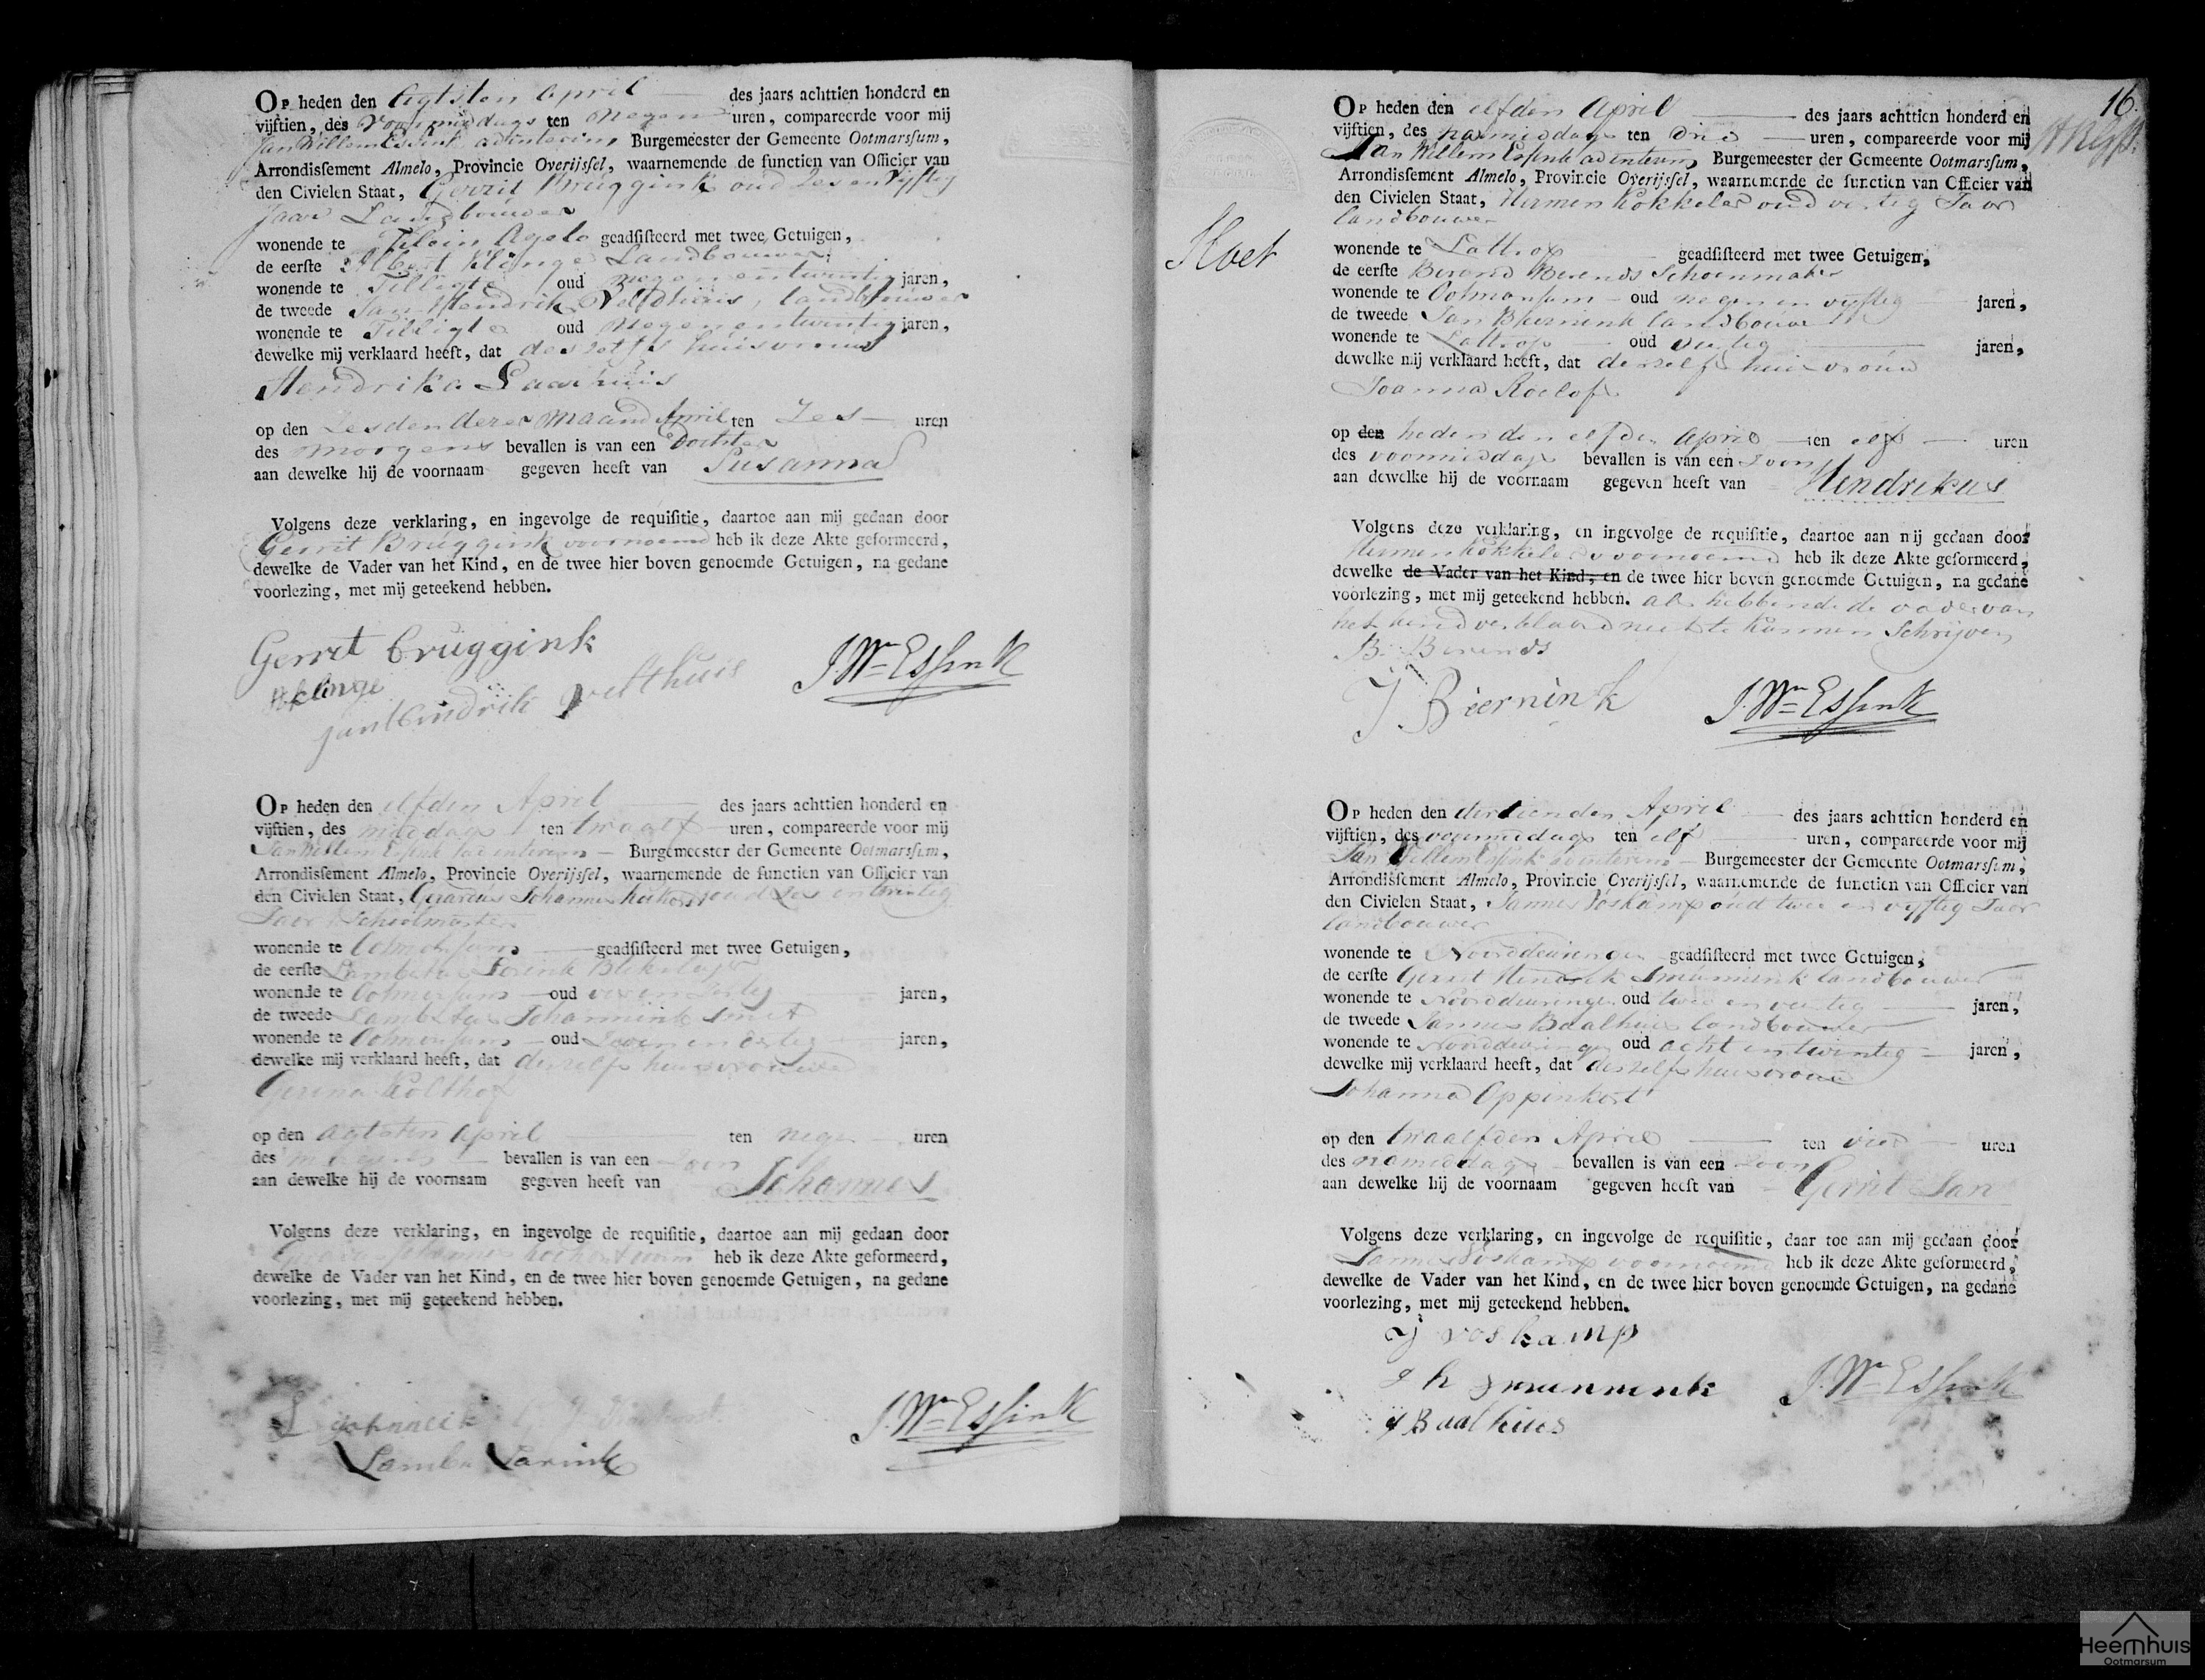 Op heden den Agtsten April des jaars achttien honderd en
vijftien, des Voormiddags ten Negen uren, compareerde voor mij
Jan Willem Essink ad interim Burgemeester der Gemeente Ootmarssum,
Arrondissement Almelo, Provincie Overijssel, waarnemende de functien van Officier van
den Civielen Staat, Gerrit Bruggink oud Zes en Vyftig
Jaar Landbouwer
wonende te Klein Agelo geadsisteerd met twee Getuigen,
de eerste Albert Klinge Landbouwer
wonende te Tilligte oud negenentwintig jaren,
de tweede Jan Hendrik Velthuis, landbouwer
wonende te Tilligte oud Negenentwintig jaren,
dewelke mij verklaard heeft, dat deszelfs huisvrouw
Hendrika Laarhuis
op den Zesden dezer Maand April ten Zes uren
des morgens bevallen is van een Dochter
aan dewelke hij de voornaam gegeven heeft van Susanna
Volgens deze verklaring, en ingevolge de requisitie, daartoe aan mij gedaan door
Gerrit Bruggink voornoemd heb ik deze Akte geformeerd,
dewelke de Vader van het Kind, en de twee hier boven genoemde Getuigen, na gedane
voorlezing, met mij geteekend hebben.
Gerret Bruggink
klinge
jan Hendrik velthuis
J. Wm Essink
Op heden den elfden April des jaars achttien honderd en
vijftien, des middags ten twaalf uren, compareerde voor mij
Jan Willem Essink ad interim Burgemeester der Gemeente Ootmarssum,
Arrondissement Almelo, Provincie Overijssel, waarnemende de functien van Officier van
den Civielen Staat, Gerardus Johannes oud zes en twintig
Jaar Schoolmaster
wonende te Ootmarsum geadsisteerd met twee Getuigen,
de eerste Lambertus
wonende te Ootmarsum oud jaren,
de tweede Lambertus smit
wonende te Ootmarsum oud Zeven en dertig jaren,
dewelke mij verklaard heeft, dat deszelfs huisvrouwe
Gerina Kolthof
op den agtsten April ten negen uren
des morgens bevallen is van een Zoon
aan dewelke hij de voornaam gegeven heeft van Johannes
Volgens deze verklaring, en ingevolge de requisitie, daartoe aan mij gedaan door
Johannes heb ik deze Akte geformeerd,
dewelke de Vader van het Kind, en de twee hier boven genoemde Getuigen, na gedane
voorlezing, met mij geteekend hebben.
J. Wm Essink
16
Op heden den elfden April des jaars achttien honderd en
vijftien, des namiddags ten drie uren, compareerde voor mij
Jan Willem Essink ad interim Burgemeester der Gemeente Ootmarssum,
Arrondissement Almelo, Provincie Overijssel, waarnemende de functien van Officier van
den Civielen Staat, Hermen Kokkeler oud veertig Jaar
landbouwer
wonende te Lattrop geadsisteerd met twee Getuigen,
de eerste Berend Berends Schoenmaker
wonende te Ootmarsum oud negen en vyftig jaren,
de tweede Jan Biernink landbouwer
wonende te Lattrop oud veertig jaren,
dewelke mij verklaard heeft, dat deszelfs huisvrouw
Joanna Roelofs
op den heden den elfden April ten elf uren
des voormiddags bevallen is van een Zoon
aan dewelke hij de voornaam gegeven heeft van Hendrikus
Volgens deze verklaring, en ingevolge de requisitie, daartoe aan mij gedaan door
Hermen Kokkeler voornoemd heb ik deze Akte geformeerd,
dewelke de Vader van het Kind, en de twee hier boven genoemde Getuigen, na gedane
voorlezing, met mij geteekend hebben. als hebbende de vader van
het kind verklaard niet te kunnen Schrijven
B. Berends
J Biernink
J. Wm Essink
Op heden den dertienden April des jaars achttien honderd en
vijftien, des voormiddags ten elf uren, compareerde voor mij
Jan Willem Essink ad interim Burgemeester der Gemeente Ootmarssum,
Arrondissement Almelo, Provincie Overijssel, waarnemende de functien van Officier van
den Civielen Staat, Jannes Voskamp oud twee en vyftig Jaar
landbouwer
wonende te Noorddeuringen geadsisteerd met twee Getuigen,
de eerste Gerrit Hendrik landbouwer
wonende te Noorddeuringe oud twee en veertig jaren,
de tweede Jannes Baalhuis landbouwer
wonende te Noorddeuringe oud acht en twintig jaren,
dewelke mij verklaard heeft, dat deszelfs huisvrouw
Johanna Oppinkort
op den twaalfden April ten vier uren
des namiddags bevallen is van een Zoon
aan dewelke hij de voornaam gegeven heeft van Gerrit Jan
Volgens deze verklaring, en ingevolge de requisitie, daar toe aan mij gedaan door
Jannes Voskamp voornoemd heb ik deze Akte geformeerd,
dewelke de Vader van het Kind, en de twee hier boven genoemde Getuigen, na gedane
voorlezing, met mij geteekend hebben.
J voskamp
J Baalhuis
J. Wm Essink
Heemhuis
Ootmarsum